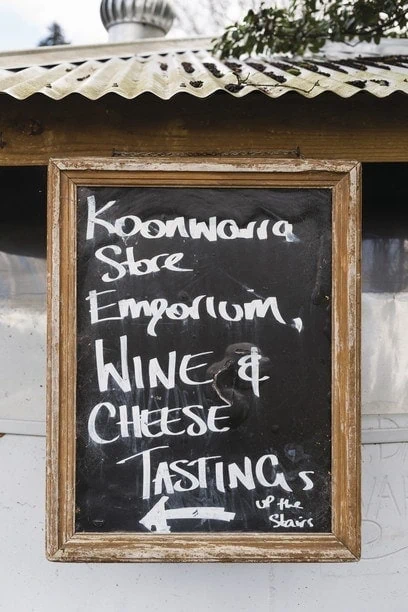 Koonwarra
Store
Emporium,
WINE &
CHEESE
TASTINGs
up the
stairs